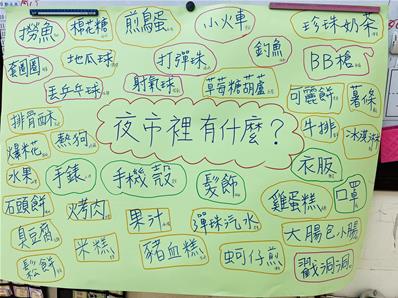 撈魚 棉花糖 煎鳥蛋 小火車 珍珠奶茶
套圈圈 地瓜球 打彈珠 釣魚 BB槍
丟乒乓球 射氣球 草莓糖葫蘆 可麗餅 薯條
排骨酥
夜市裡有什麼？
牛排 冰淇淋
爆米花 熱狗
水果 手錶 手機殼 髮飾 衣服
石頭餅 烤肉 果汁 彈珠汽水 雞蛋糕 口罩
臭豆腐 米糕 豬血糕 蚵仔煎 大腸包小腸
鬆餅 戳洞洞